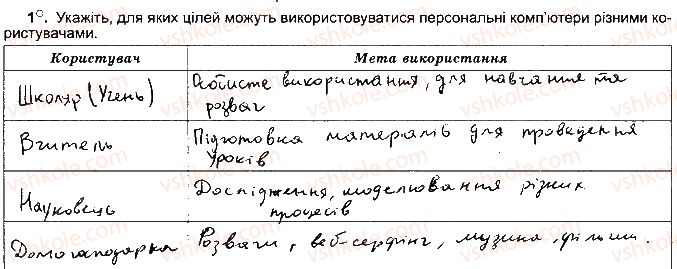 1°. Укажіть, для яких цілей можуть використовуватися персональні комп'ютери різними ко-
ристувачами.
Користувач Мета використання
Школяр (Учень) Особисте використання, для навчання та
розваг
Вчитель Підготовка матералів для проведення
уроків
Науковець Дослідження, моделювання різних
процесів
Домогаподарка Розваги, веб-серфінг, музика, фільми.